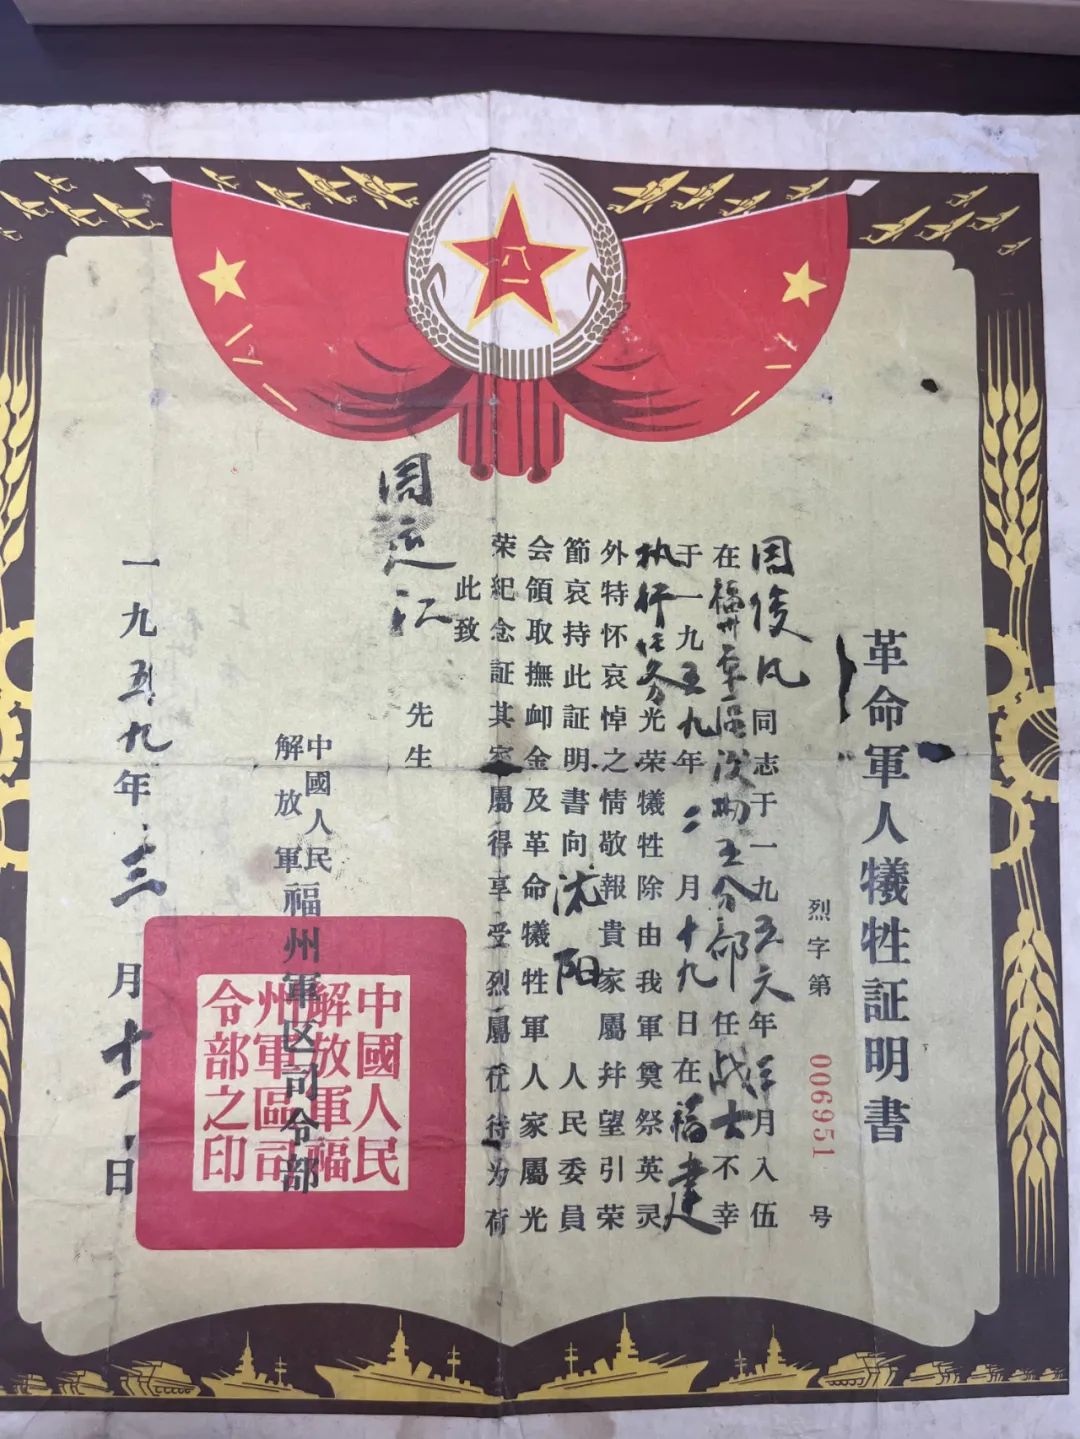 革命軍人犧牲証明書
烈字第 006951 号
周俊凡同志于一九五六年三月入伍
在福州軍区后勤五分部任战士不幸
于一九五九年二月十九日在福建
执行任务光荣犧牲除由我軍奠祭英灵
外特怀哀悼之情敬報貴家屬幷望引荣
節哀持此証明書向沈阳人民委員
会領取撫卹金及革命犧牲軍人家屬光
荣紀念証其家屬得享受烈屬优待为荷
此致
周运江先生
中國人民
解放軍福州軍区司令部
中國人民
解放軍福
州軍區司
令部之印
一九五九年三月十一日
八一